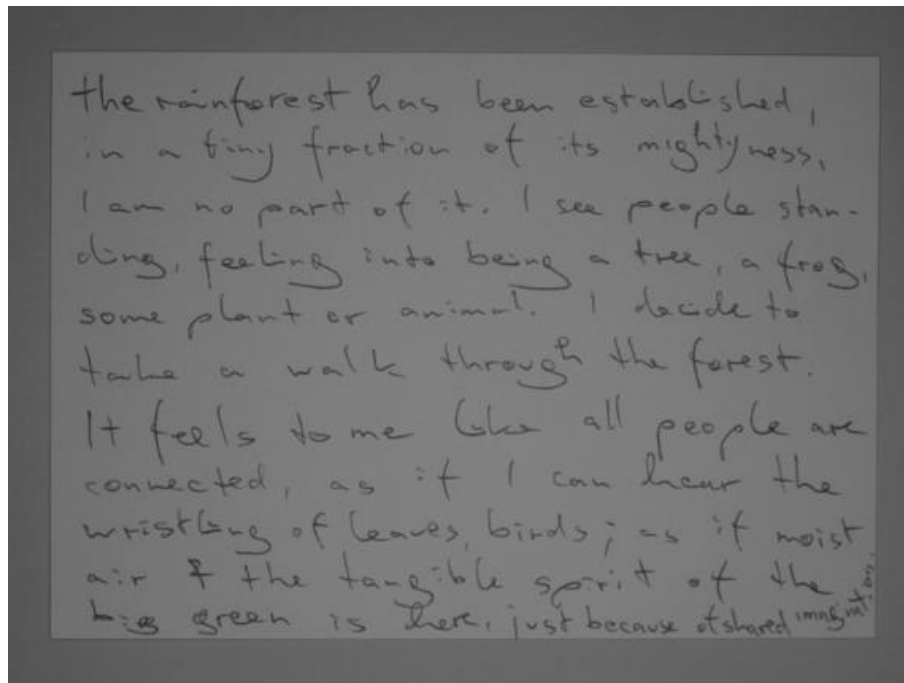 the rainforest has been established,
in a tiny fraction of its mightyness,
I am no part of it. I see people stan-
ding, feeling into being a tree, a frog,
some plant or animal. I decide to
take a walk through the forest.
It feels to me like all people are
connected, as if I can hear the
wristling of leaves, birds; as if moist
air & the tangible spirit of the
big green is there, just because of shared imagination.